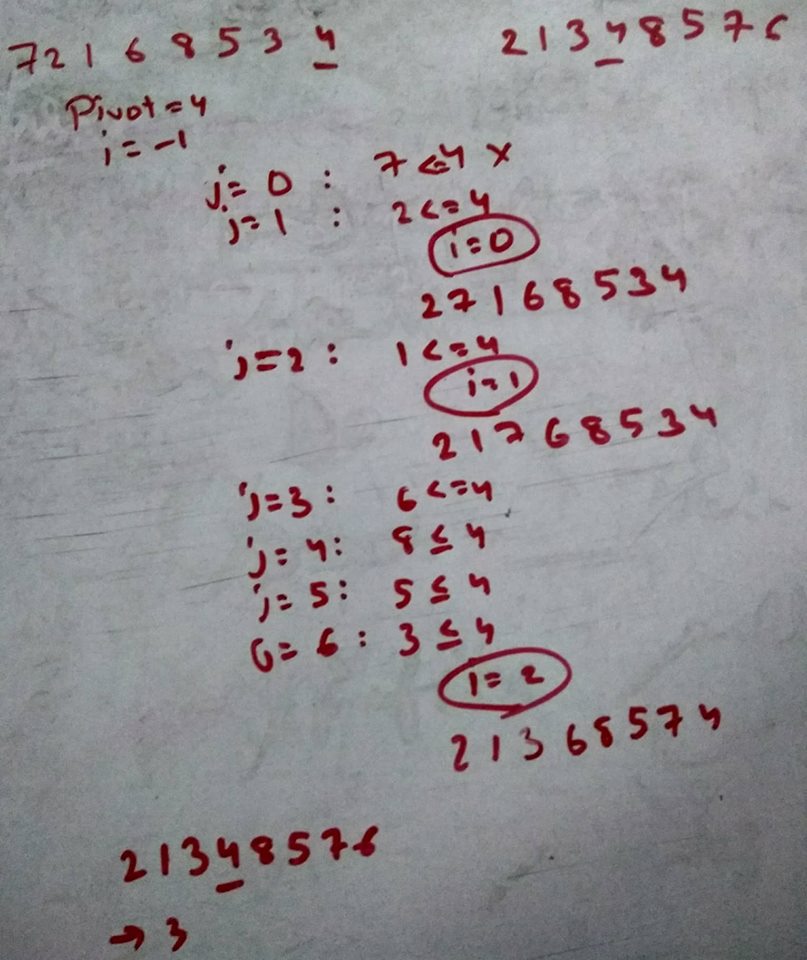 7 2 1 6 8 5 3 4
2 1 3 4 8 5 7 6
Pivot = 4
i = -1
j = 0 : 7 <= 4 ×
j = 1 : 2 <= 4
i = 0
2 7 1 6 8 5 3 4
j = 2 : 1 <= 4
i = 1
2 1 7 6 8 5 3 4
j = 3 : 6 <= 4
j = 4 : 8 ≤ 4
j = 5 : 5 ≤ 4
6 = 6 : 3 ≤ 4
i = 2
2 1 3 6 8 5 7 4
2 1 3 4 8 5 7 6
→ 3